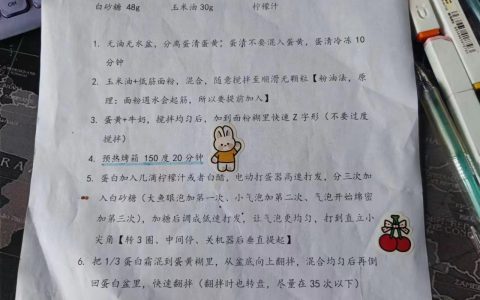 白砂糖 48g 玉米油 30g 柠檬汁
1. 无油无水盆，分离蛋清蛋黄；蛋清不要混入蛋黄，蛋清冷冻 10
分钟
2. 玉米油+低筋面粉，混合，随意搅拌至顺滑无颗粒【粉油法，原
理：面粉遇水会起筋，所以要提前加入】
3. 蛋黄+牛奶，搅拌均匀后，加到面粉糊里快速 Z 字形（不要过度
搅拌）
4. 预热烤箱 150 度 20 分钟
5. 蛋白加入几滴柠檬汁或者白醋，电动打蛋器高速打发，分三次加
入白砂糖（大鱼眼泡加第一次、小气泡加第二次、气泡开始绵密
加第三次），加糖后调成低速打发，让气泡更均匀，打到直立小
尖角【转 3 圈、中间停、关机器后垂直提起】
6. 把 1/3 蛋白霜混到蛋黄糊里，从盆底向上翻拌，混合均匀后再倒
回蛋白盆里，快速翻拌（翻拌时也转盘，尽量在 35 次以下）